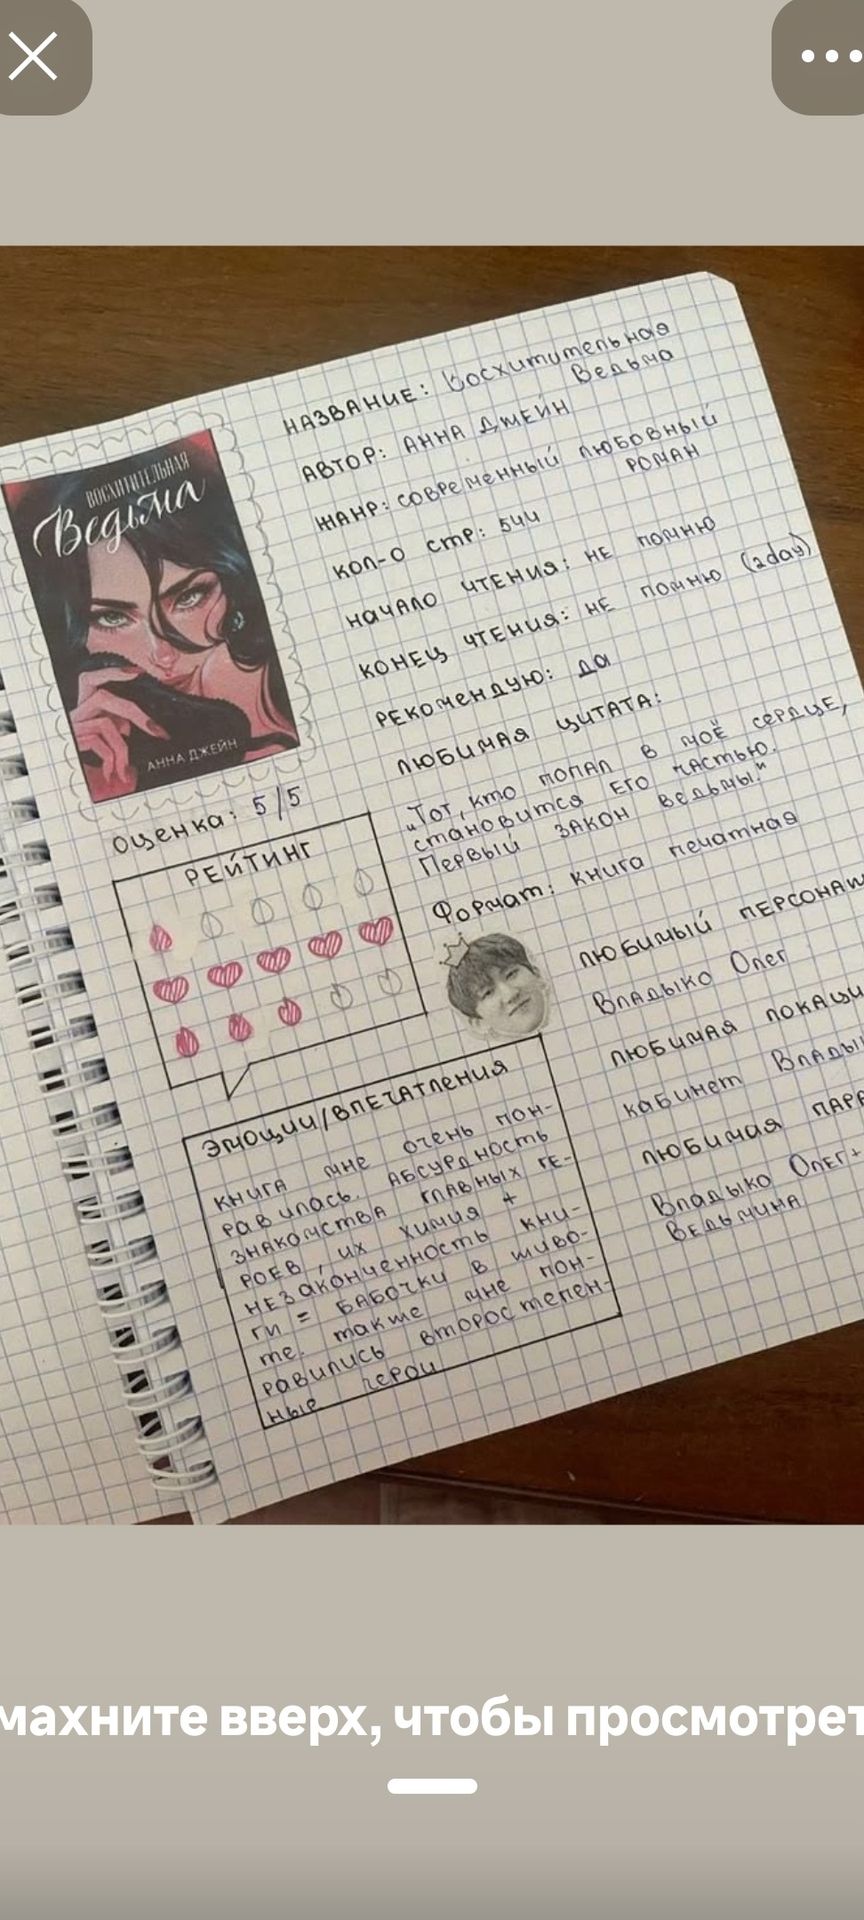 НАЗВАНИЕ: Восхитительная
Ведьма
АВТОР: АННА ДЖЕЙН
ЖАНР: СОВРЕМЕННЫЙ ЛЮБОВНЫЙ
РОМАН
КОЛ-О СТР: 544
НАЧАЛО ЧТЕНИЯ: НЕ ПОМНЮ
КОНЕЦ ЧТЕНИЯ: НЕ ПОМНЮ (2day)
РЕКОМЕНДУЮ: ДА
ЛЮБИМАЯ ЦИТАТА:
„Тот, кто попал в моё сердце,
становится его частью.
Первый закон ведьмы."
Формат: книга печатная
ВОСХИТИТЕЛЬНАЯ
Ведьма
АННА ДЖЕЙН
оценка: 5/5
РЕЙТИНГ
ЛЮБИМЫЙ ПЕРСОНАЖ
Владыко Олег
ЛЮБИМАЯ ЛОКАЦИ
кабинет Влады
ЛЮБИМАЯ ПАРА
Владыко Олег+
Ведьмина
ЭМОЦИИ/ВПЕЧАТЛЕНИЯ
КНИГА МНЕ ОЧЕНЬ ПОН-
РАВИЛАСЬ. АБСУРДНОСТЬ
ЗНАКОМСТВА ГЛАВНЫХ ГЕ-
РОЕВ, ИХ ХИМИЯ +
НЕЗАКОНЧЕННОСТЬ КНИ-
ГИ = БАБОЧКИ В ЖИВО-
ТЕ. ТАКЖЕ МНЕ ПОН-
РАВИЛИСЬ ВТОРОСТЕПЕН-
НЫЕ ГЕРОИ
махните вверх, чтобы просмотрет